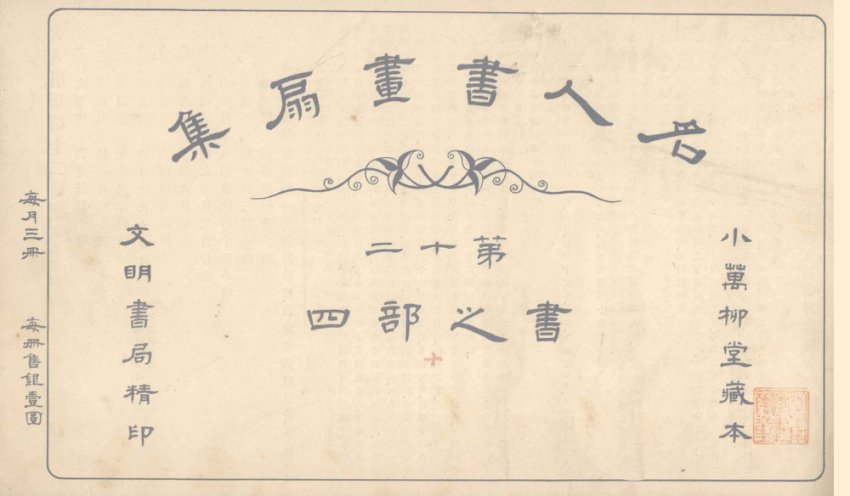 名人書畫扇集
第十二
書之部四
十
小萬柳堂藏本
文明書局精印
每月三冊 每冊售銀壹圓